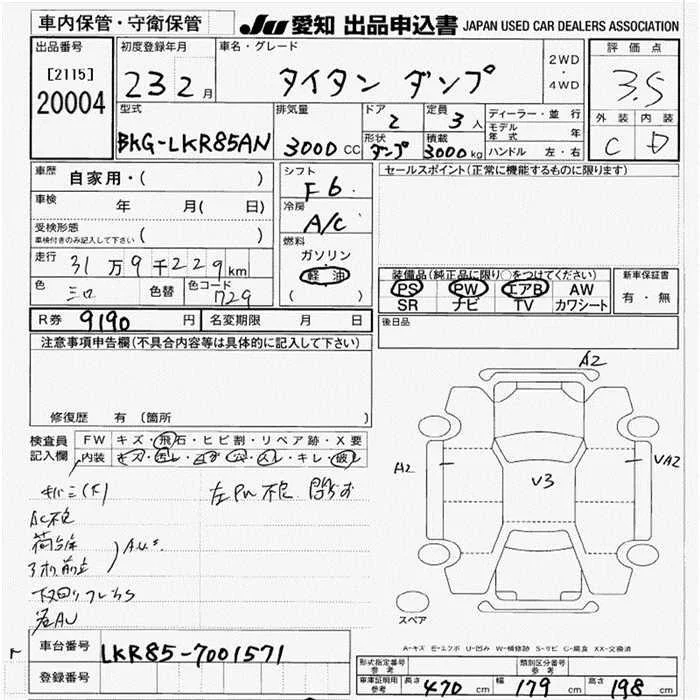 車内保管・守衛保管
JU 愛知 出品申込書 JAPAN USED CAR DEALERS ASSOCIATION
出品番号
[2115]
20004
初度登録年月
23 2月
車名・グレード
タイタン ダンプ
2WD
・
4WD
評価点
3.5
外装 内装
C D
型式
BKG-LKR85AN
排気量
3000 CC
ドア
2
定員
3人
形状
ダンプ
積載
3000kg
ディーラー・並行
モデル年式 年
ハンドル 左・右
車歴 自家用・( )
車検 年 月( 日)
受検形態
車検付きのみ記入して下さい ( )
走行 31万9千229km
色 色替 色コード 729
シフト
F6
冷房
A/C
燃料
ガソリン
軽油
( )
セールスポイント(正常に機能するものに限ります)
装備品(純正品に限り○をつけてください)
PS PW エアB AW
SR ナビ TV カワシート
新車保証書
有・無
R券 9190円 名変期限 月 日
後日品
注意事項申告欄(不具合内容等は具体的に記入して下さい)
修復歴 有 (箇所 )
検査員記入欄
FW キズ・飛石・ヒビ割・リペア跡・X要
内装 キズ・汚レ・コゲ・穴・スレ・キレ・破レ
左PW不良
AC不良
A2
A2
V3
VA2
スペア
A-キズ E-エクボ U-凹み W-補修跡 S-サビ C-腐食 XX-交換済
車台番号 LKR85-7001571
登録番号
形式指定番号 参考
類別区分番号 参考
車庫証明用 参考 長さ 470 cm 幅 179 cm 高さ 198 cm